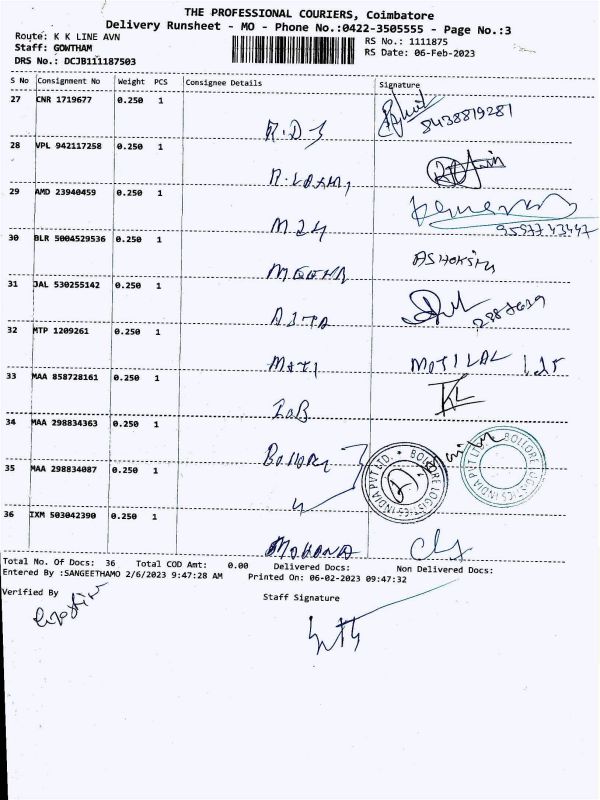 THE PROFESSIONAL COURIERS, Coimbatore
Delivery Runsheet - MO - Phone No.:0422-3505555 - Page No.:3
Route: K K LINE AVN
RS No.: 1111875
Staff: GOWTHAM
RS Date: 06-Feb-2023
DRS No.: DCJB111187503
S No Consignment No Weight PCS Consignee Details Signature
27 CNR 1719677 0.250 1
R.D.J 8438819281
28 VPL 942117258 0.250 1
R.Laxmi
29 AMD 23940459 0.250 1
M24
9597743447
30 BLR 5004529536 0.250 1
MEENA
31 JAL 530255142 0.250 1
AJTA
32 MTP 1209261 0.250 1
MOTI MOTILAL
33 MAA 858728161 0.250 1
IOB
34 MAA 298834363 0.250 1
Bollore
BOLLORE LOGISTICS INDIA PVT LTD.
BOLLORE LOGISTICS INDIA PVT LTD.
35 MAA 298834087 0.250 1
36 IXM 503042390 0.250 1
MOHANA
Total No. Of Docs: 36 Total COD Amt: 0.00 Delivered Docs: Non Delivered Docs:
Entered By :SANGEETHAMO 2/6/2023 9:47:28 AM Printed On: 06-02-2023 09:47:32
Verified By Staff Signature